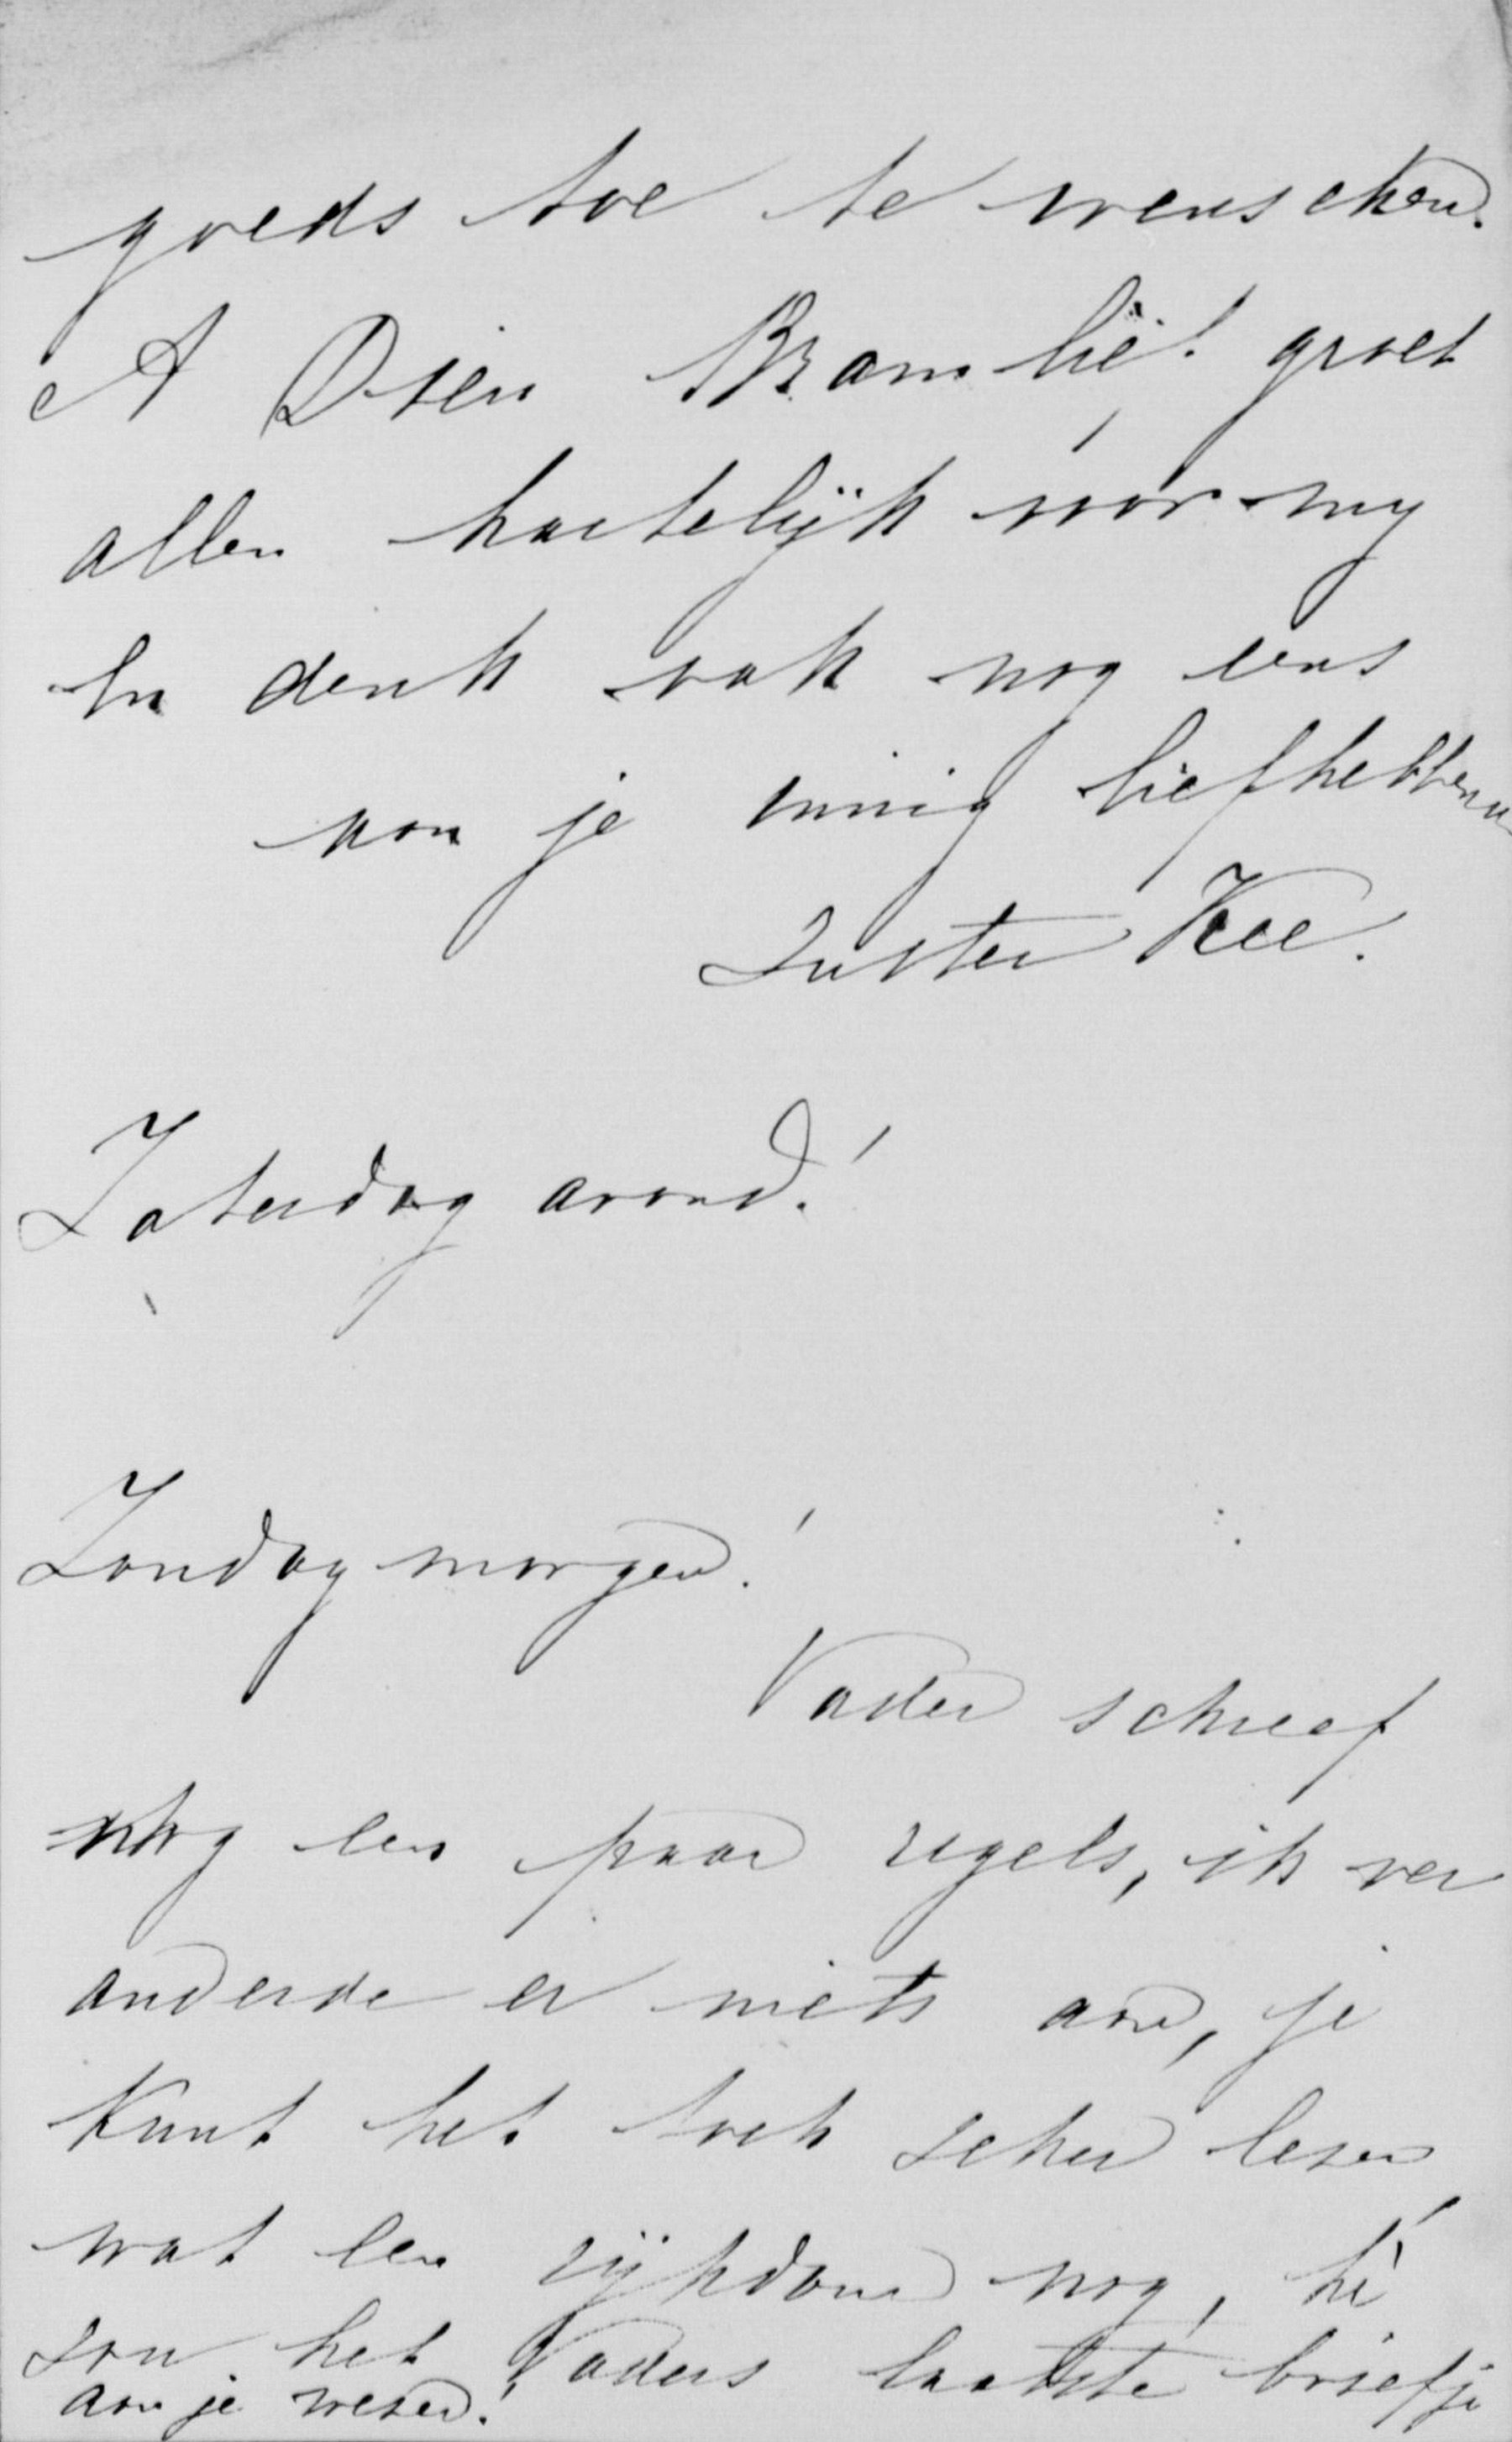 goeds toe te wenschen.
A Dien Bram lie! groet
allen hartelijk voor my
En denk ook nog eens
aan je innig liefhebbende
Zuster Kee.
Zaterdag avond!
Zondag morgen!
Vader schreef
nog een paar regels, ik ver
anderde er niets aan, je
kunt het toch zeker lezen
wat een rijkdom nog, hé
zou het Vaders laatste briefje
aan je wezen!